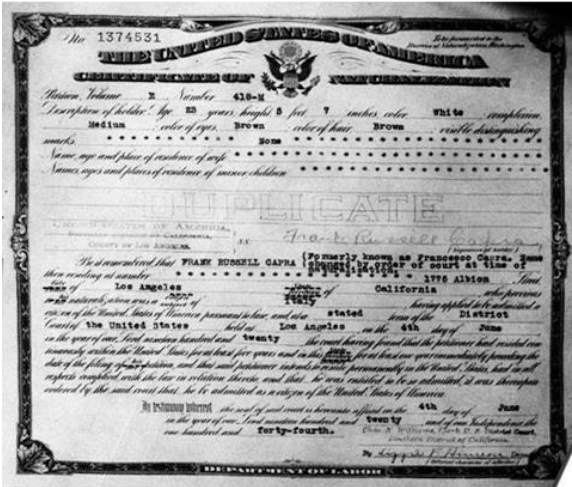 No. 1374531
To be forwarded to the
Bureau of Naturalization, Washington
THE UNITED STATES OF AMERICA
CERTIFICATE OF NATURALIZATION
Petition, Volume R Number 418-M
Description of holder: Age 23 years; height 5 feet 7 inches; color White complexion
Medium color of eyes Brown color of hair Brown visible distinguishing
marks None
Name, age and place of residence of wife
Names, ages and places of residence of minor children
DUPLICATE
UNITED STATES OF AMERICA
DISTRICT OF CALIFORNIA
COUNTY OF LOS ANGELES
Frank Russell Capra
(Signature of holder)
Be it remembered, that FRANK RUSSELL CAPRA (Formerly known as Francesco Capra. Name
changed by order of court at time of
then residing at number 1776 Albion Street
City of Los Angeles State of California who previous
to his naturalization was a subject of Italy having applied to be admitted a
citizen of the United States of America pursuant to law, and at a stated term of the District
Court of the United States held at Los Angeles on the 4th day of June
in the year of our Lord nineteen hundred and twenty the court having found that the petitioner had resided con-
tinuously within the United States for at least five years and in this State for at least one year immediately preceding the
date of the filing of his petition, and that said petitioner intends to reside permanently in the United States, had in all
respects complied with the law in relation thereto, and that he was entitled to be so admitted, it was thereupon
ordered by the said court that he be admitted as a citizen of the United States of America.
In testimony whereof the seal of said court is hereunto affixed on the 4th day of June
in the year of our Lord nineteen hundred and twenty and of our Independence the
one hundred and forty-fourth.
Chas. N. Williams, Clerk U. S. District Court,
Southern District of California.
By Deputy
(Official character of attestor)
DEPARTMENT OF LABOR